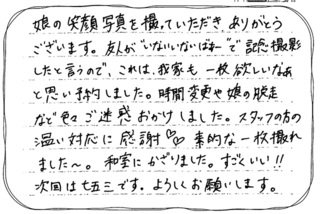 娘の笑顔写真を撮っていただき ありがとう
ございます。友人が"いないいないばぁ"で記念撮影
したと言うので、これは、我家も 一枚欲しいなぁ
と思い予約しました。時間変更や娘の脱走
など色々 ご迷惑おかけしました。スタッフの方の
温い対応に 感謝♡♡ 素的な一枚撮れ
ました〜。和室にかざりました。すごくいい!!
次回は七五三です。よろしくお願いします。